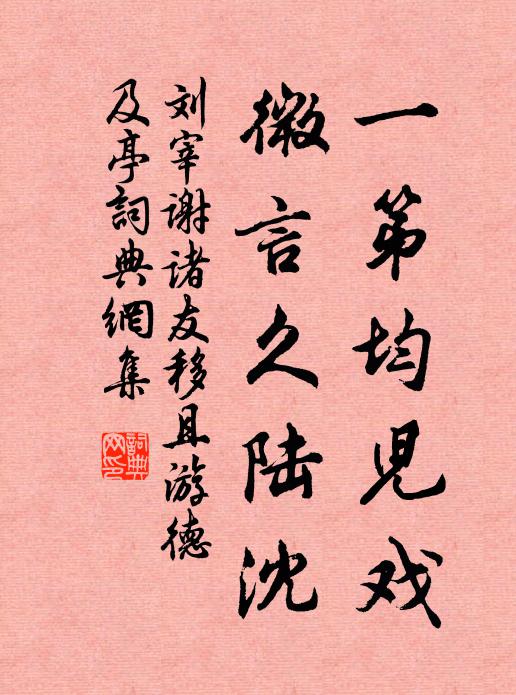 一第均儿戏
微言久陆沈
刘宰谢诸友移具游德
及亭詞典網集
詞典網印